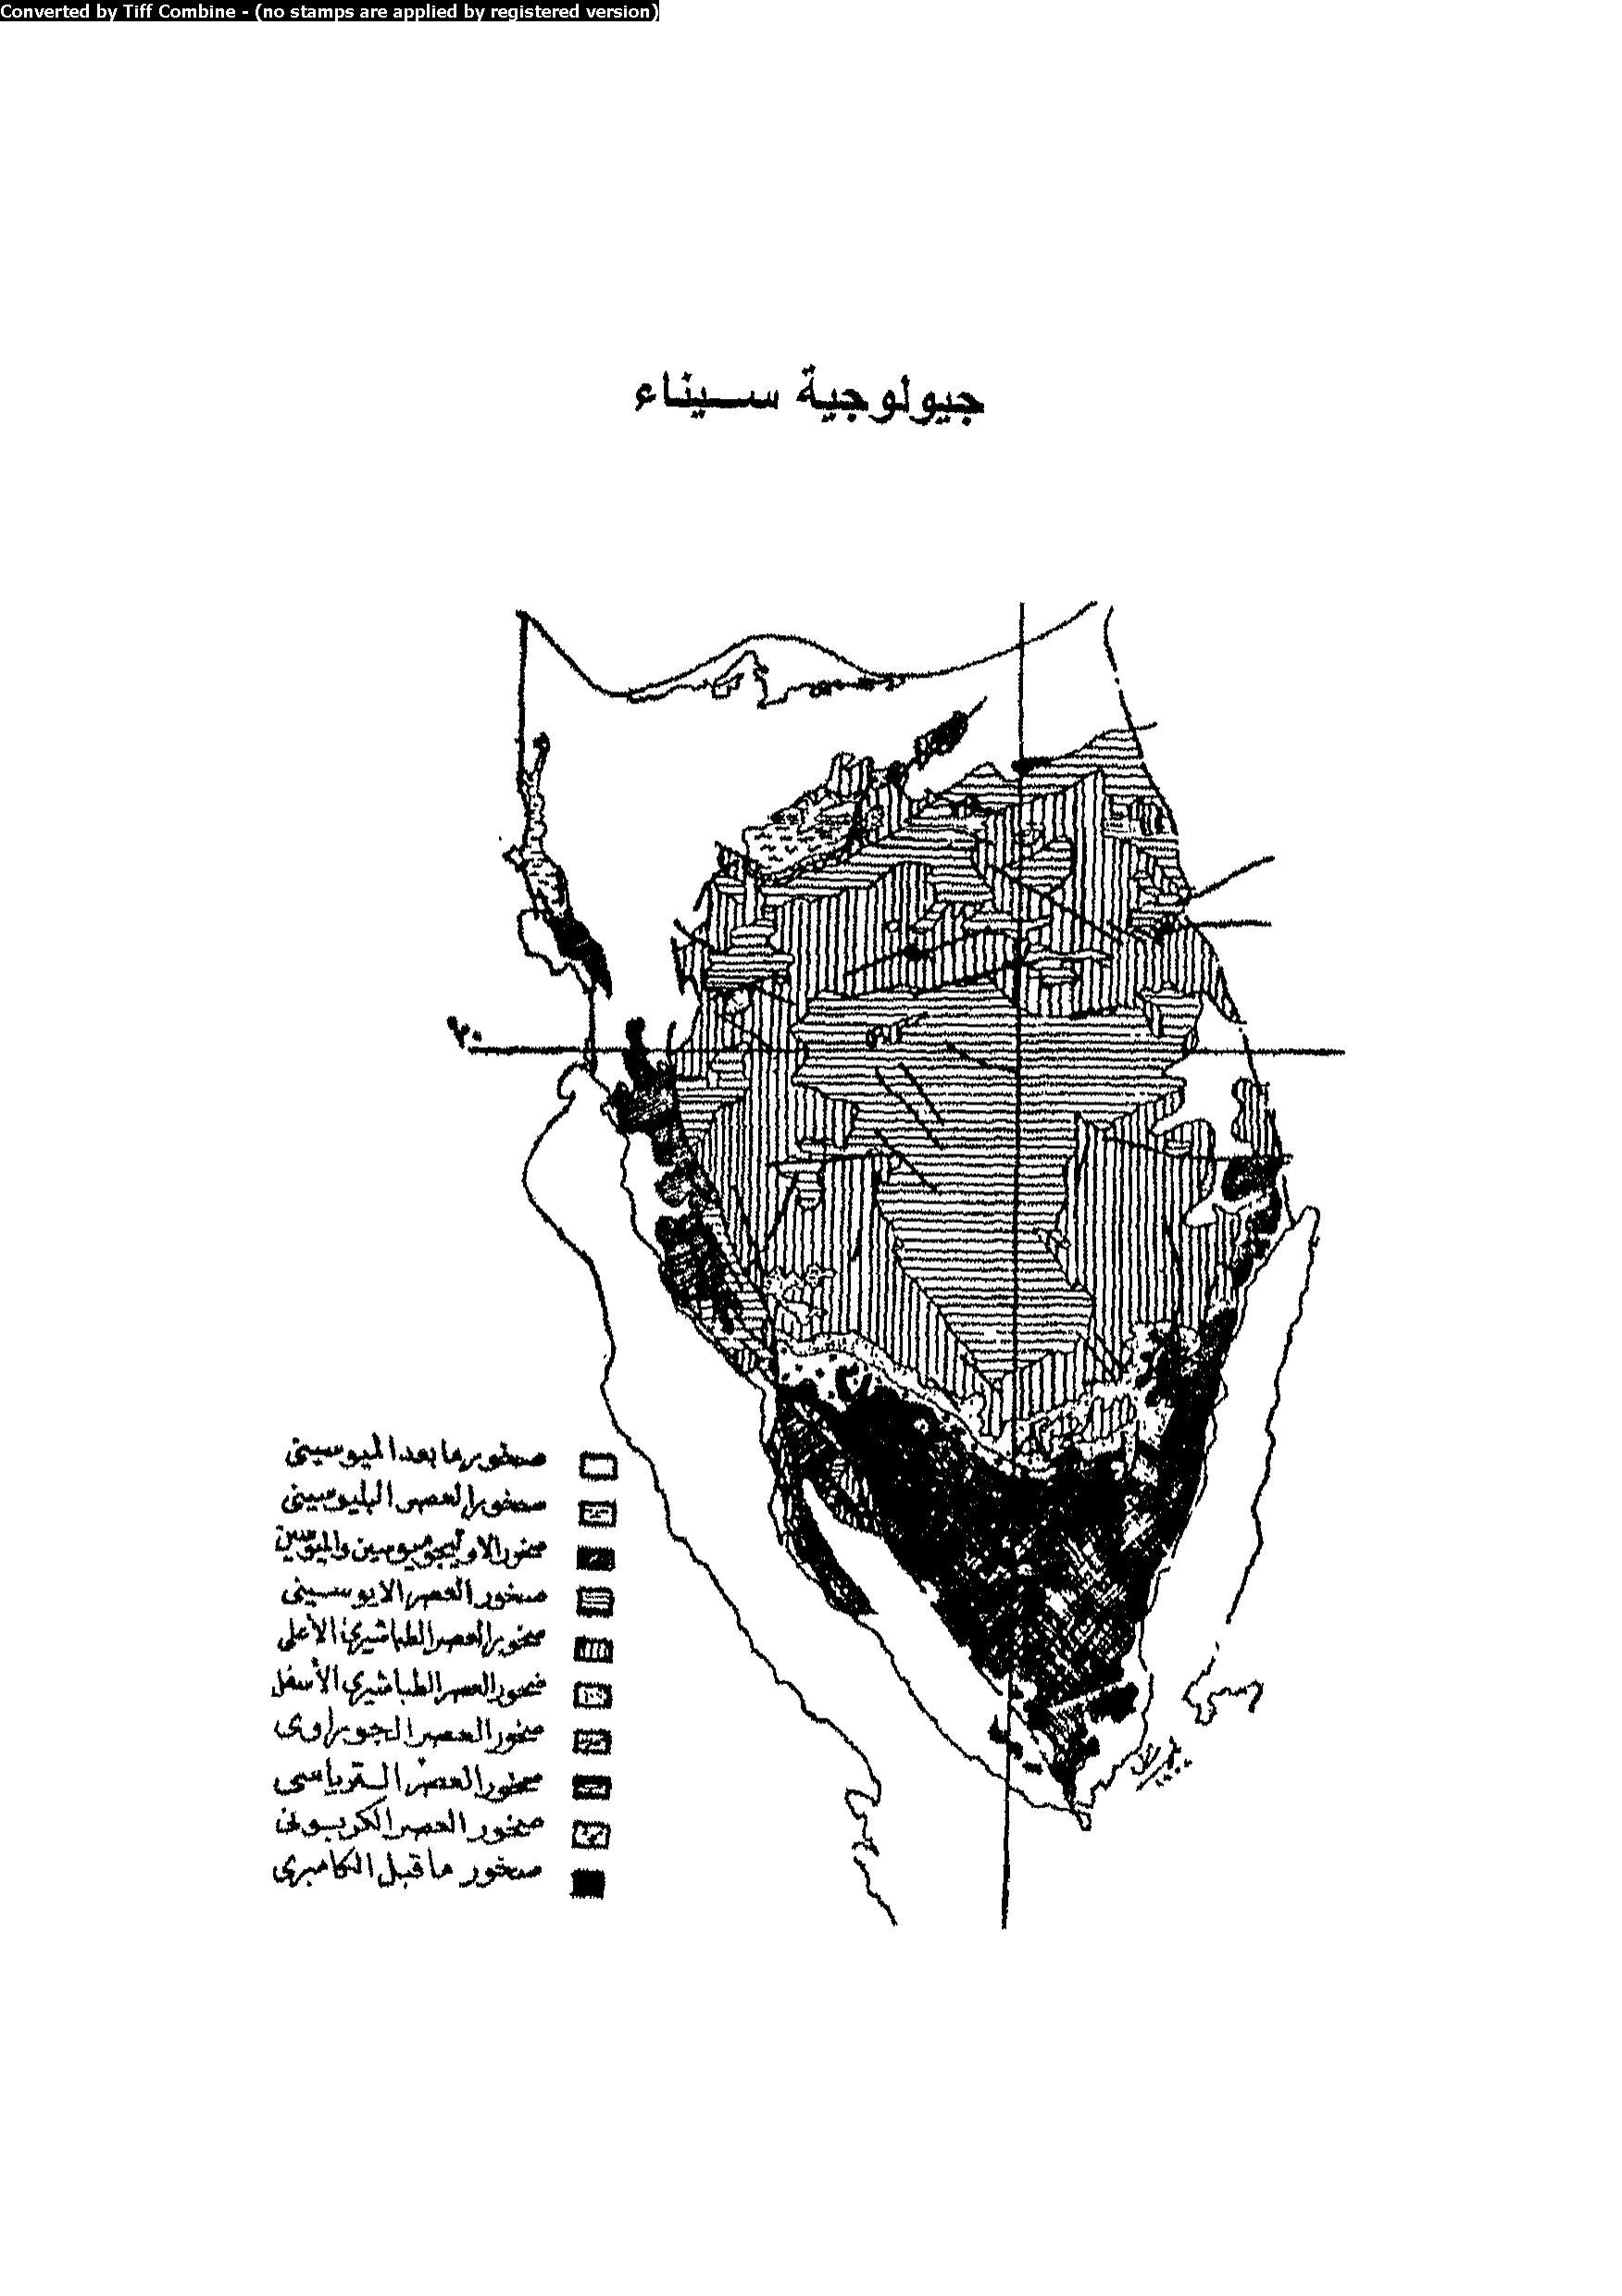 Converted by Tiff Combine - (no stamps are applied by registered version)
جيولوجية سيناء
٣٠
صخور ما بعد الميوسيني
صخور العصر البليوسيني
صخور الاوليجوسين والميوسين
صخور العصر الايوسيني
صخور العصر الطباشيري الأعلى
صخور العصر الطباشيري الأسفل
صخور العصر الجوراوى
صخور العصر الترياسى
صخور العصر الكربونى
صخور ما قبل الكامبرى